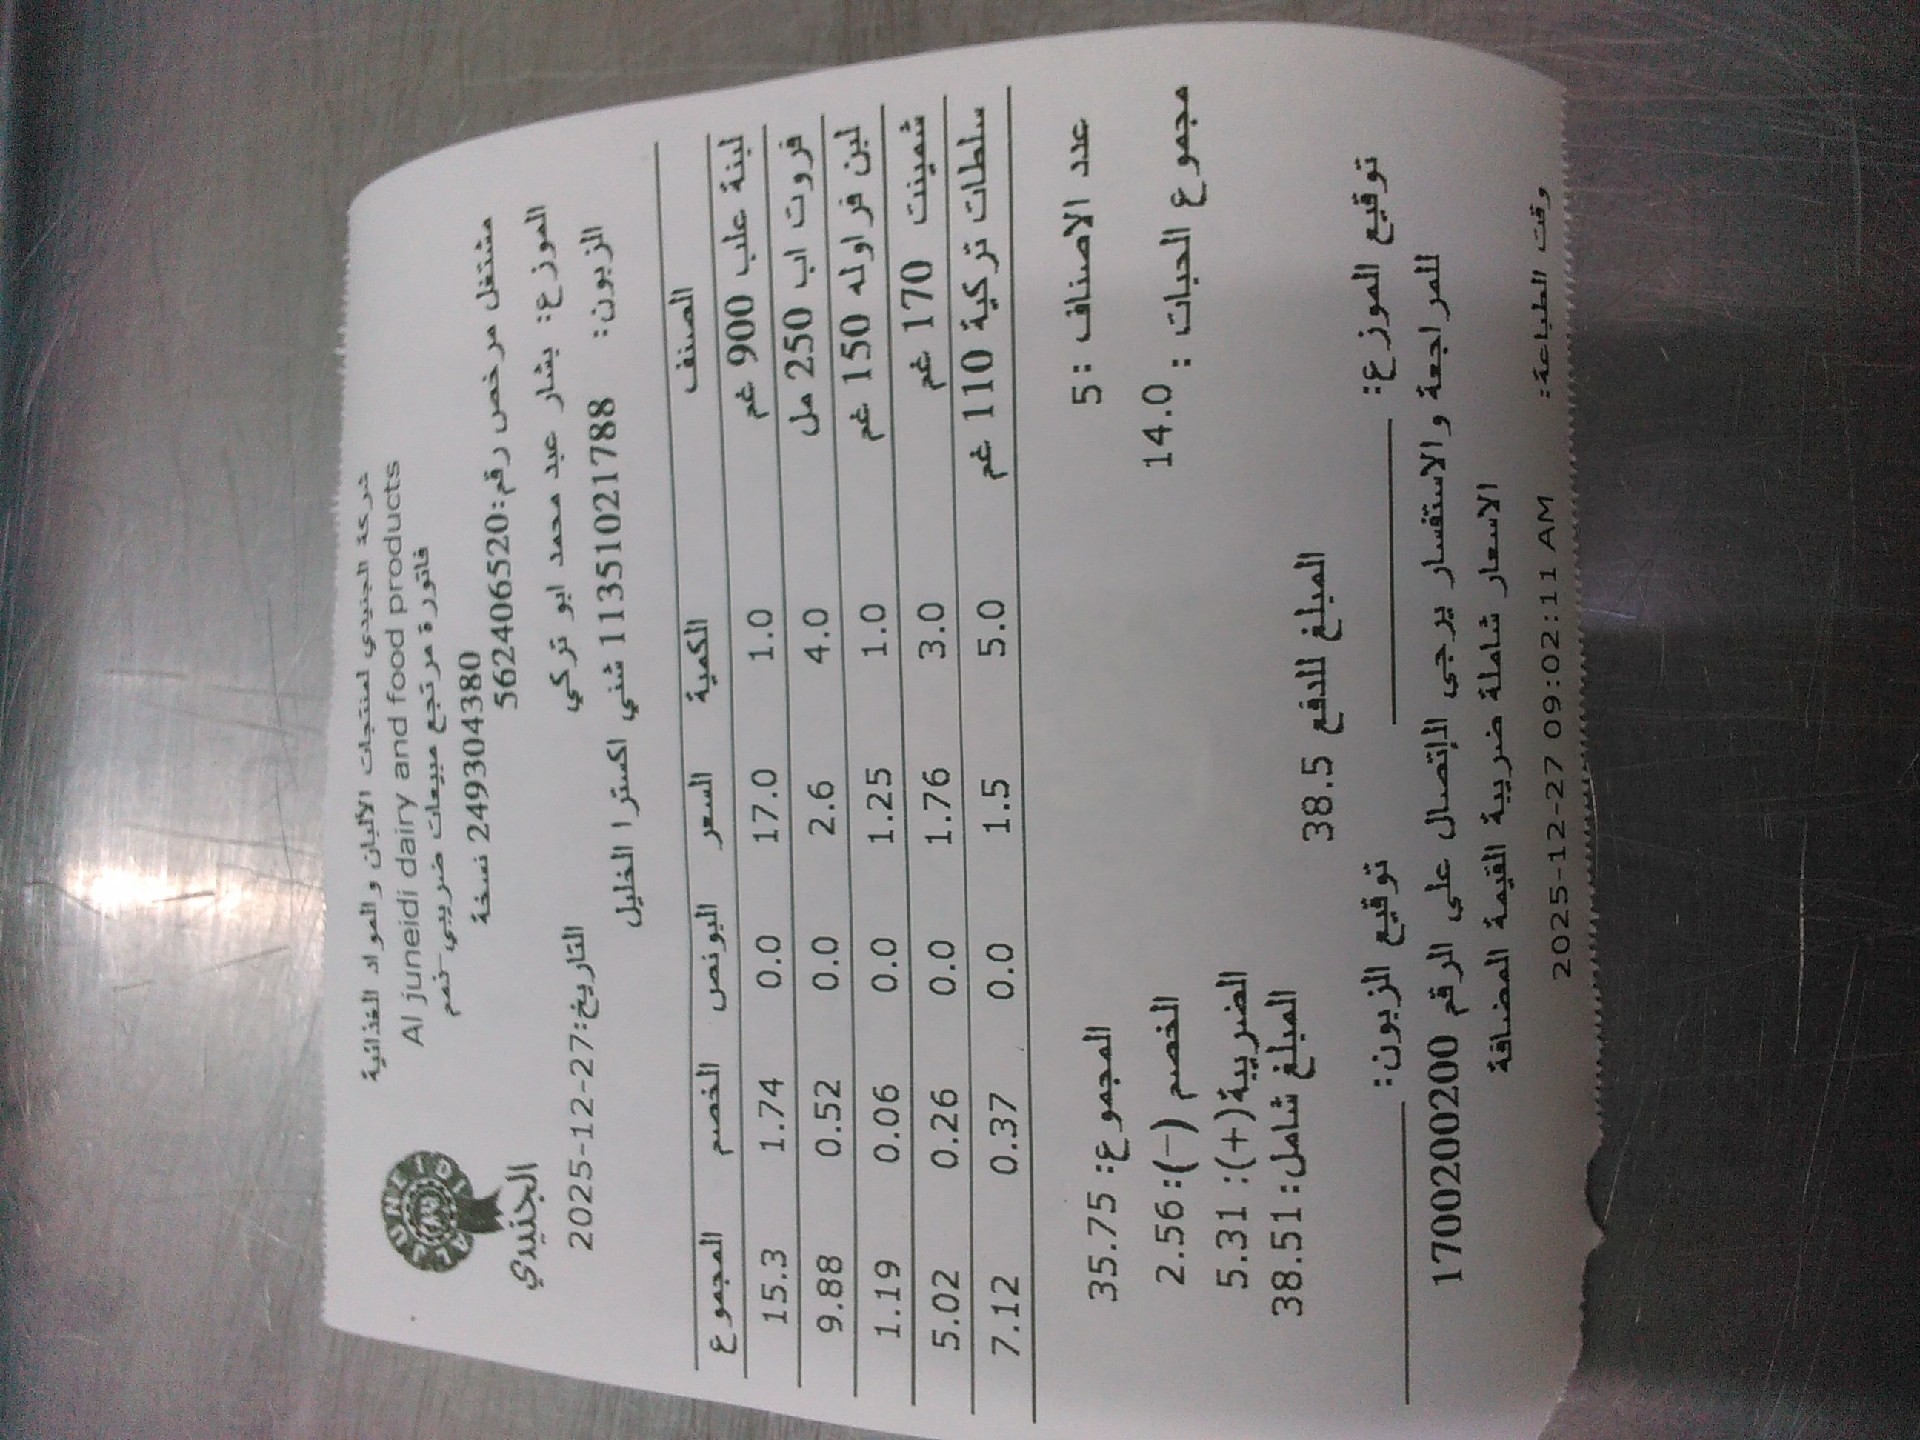 شركة الجنيدي لمنتجات الألبان والمواد الغذائية
Al juneidi dairy and food products
فاتورة مرتجع مبيعات ضريبي-ذمم
249304380 نسخة
مشتغل مرخص رقم:562406520
الجنيدي
الموزع: بشار عبد محمد ابو تركي
التاريخ:2025-12-27
الزبون: 11351021788 شني اكسترا الخليل
الصنف الكمية السعر البونص الخصم المجموع
لبنة علب 900 غم 1.0 17.0 0.0 1.74 15.3
فروت اب 250 مل 4.0 2.6 0.0 0.52 9.88
لبن فراوله 150 غم 1.0 1.25 0.0 0.06 1.19
شمينت 170 غم 3.0 1.76 0.0 0.26 5.02
سلطات تركية 110 غم 5.0 1.5 0.0 0.37 7.12
عدد الاصناف :5 المجموع: 35.75
مجموع الحبات : 14.0 الخصم (-):2.56
الضريبة(+): 5.31
المبلغ شامل:38.51
المبلغ للدفع 38.5
توقيع الموزع: توقيع الزبون:
للمراجعة والاستفسار يرجى الإتصال على الرقم 1700200200
الاسعار شاملة ضريبة القيمة المضافة
وقت الطباعة: 2025-12-27 09:02:11 AM